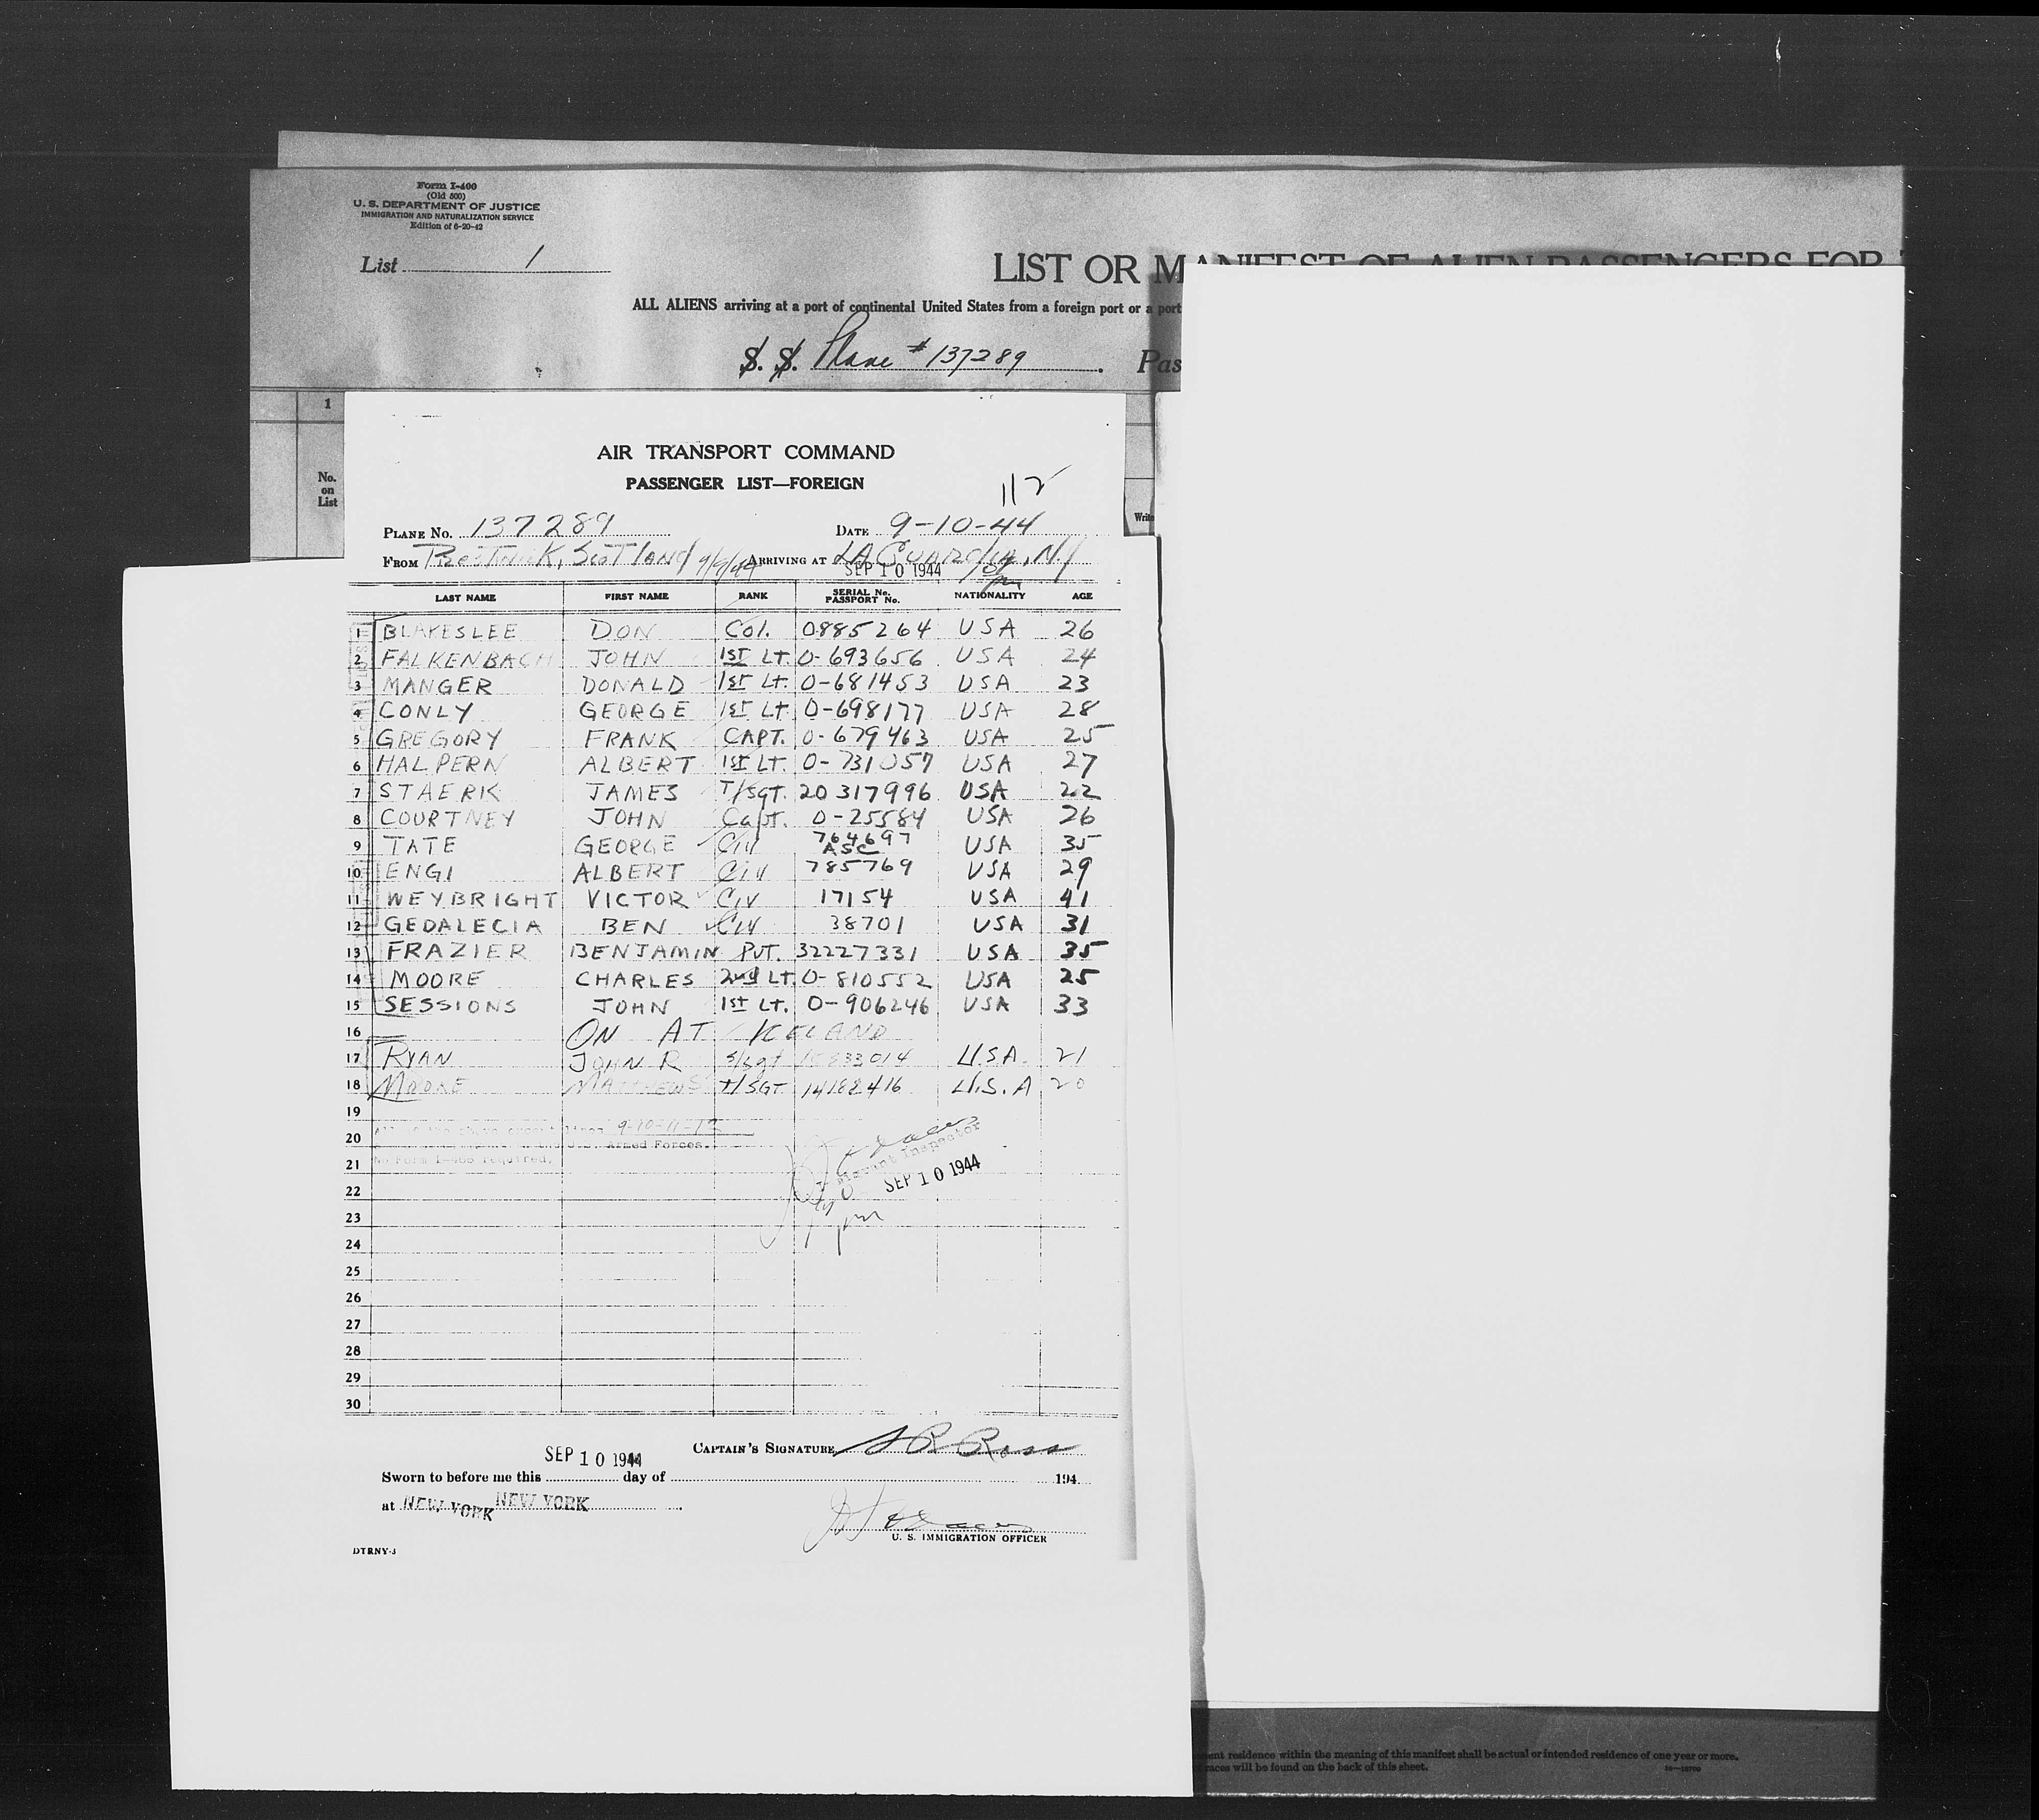 Form I-400
(Old 500)
U. S. DEPARTMENT OF JUSTICE
IMMIGRATION AND NATURALIZATION SERVICE
Edition of 6-20-42
List 1
LIST OR MANIFEST OF ALIEN PASSENGERS FOR
ALL ALIENS arriving at a port of continental United States from a foreign port or a port
S. S. Plane # 137289. Pas
1
No. on List
Write
AIR TRANSPORT COMMAND
PASSENGER LIST—FOREIGN
112
PLANE No. 137289 DATE 9-10-44
FROM Prestwick, Scotland 9/9/44 ARRIVING AT LA Guardia, N.Y
SEP 10 1944 pm
LAST NAME FIRST NAME RANK SERIAL No. PASSPORT No. NATIONALITY AGE
1 BLAKESLEE DON Col. 0885264 USA 26
2 FALKENBACH JOHN 1ST LT. O-693656 USA 24
3 MANGER DONALD 1ST LT. O-681453 USA 23
4 CONLY GEORGE 1ST LT. O-698177 USA 28
5 GREGORY FRANK CAPT. O-679463 USA 25
6 HALPERN ALBERT 1ST LT. O-731057 USA 27
7 STAERK JAMES T/SGT. 20317996 USA 22
8 COURTNEY JOHN Capt. O-25584 USA 26
9 TATE GEORGE Civ 764697 ASC USA 35
10 ENGI ALBERT Civ 785769 USA 29
11 WEYBRIGHT VICTOR Civ 17154 USA 41
12 GEDALECIA BEN Civ 38701 USA 31
13 FRAZIER BENJAMIN Pvt. 32227331 USA 35
14 MOORE CHARLES 2nd LT. O-810552 USA 25
15 SESSIONS JOHN 1ST LT. O-906246 USA 33
16 ON AT ICELAND
17 RYAN JOHN R S/Sgt 833014 U.S.A. 21
18 MOORE MATTHEWS T/SGT 14182416 U.S.A 20
19
All of the above except lines 9-10-11-12
20 U.S. Armed Forces.
21 No Form I-466 required.
Immigrant Inspector
SEP 10 1944
pm
22
23
24
25
26
27
28
29
30
CAPTAIN'S SIGNATURE S R Ross
SEP 10 1944
Sworn to before me this day of 194
at NEW YORK NEW YORK
U. S. IMMIGRATION OFFICER
DTRNY-3
ent residence within the meaning of this manifest shall be actual or intended residence of one year or more.
races will be found on the back of this sheet.